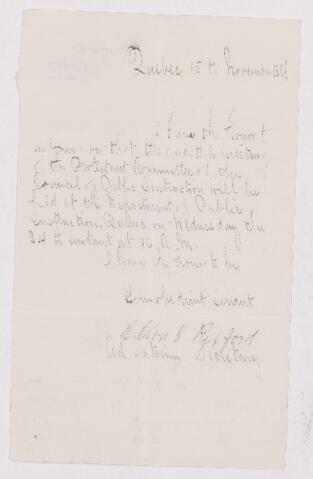 Quebec 15 th November
I have the honor to
inform you that the quarterly meeting
of the Protestant Committee of the
Council of Public Instruction will be
held at the Department of Public
Instruction, Quebec on Wednesday the
24 th instant at 10 A.M.
I have the honor to be
Your obedient servant
Elson I Rexford
Ad interim Secretary